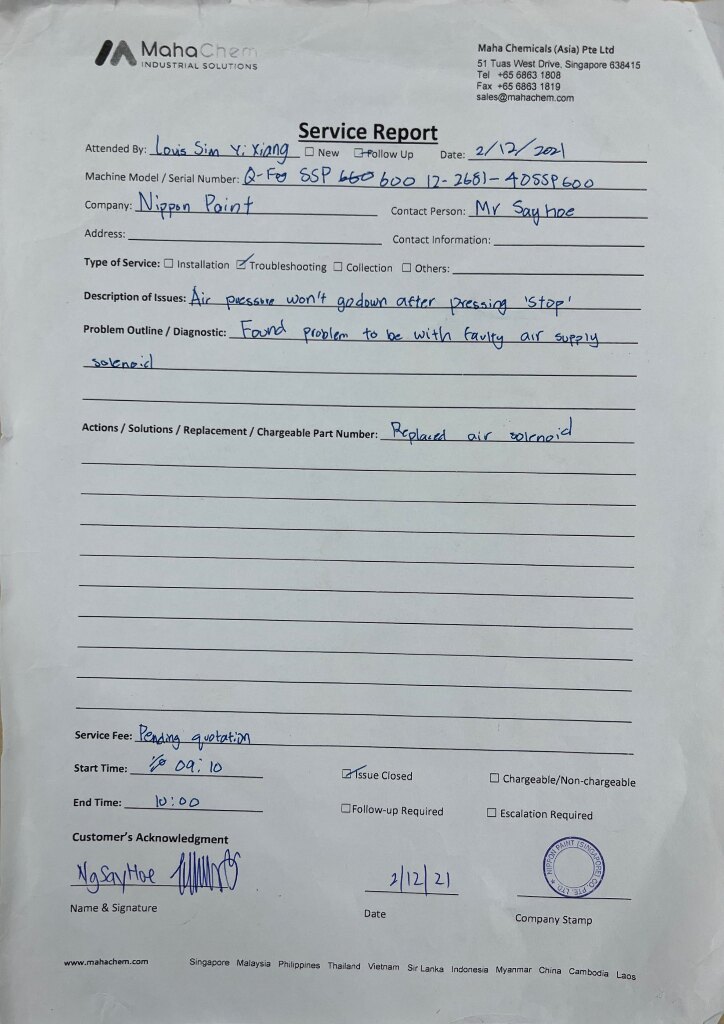 MahaChem
INDUSTRIAL SOLUTIONS
Maha Chemicals (Asia) Pte Ltd
51 Tuas West Drive, Singapore 638415
Tel +65 6863 1808
Fax +65 6863 1819
sales@mahachem.com
Service Report
Attended By: Louis Sim Yi Xiang ☐ New ☐ Follow Up Date: 2/12/2021
Machine Model / Serial Number: Q-Fog SSP 600 12-2681-40SSP600
Company: Nippon Paint Contact Person: Mr Sayhoe
Address: Contact Information:
Type of Service: ☐ Installation ☑ Troubleshooting ☐ Collection ☐ Others:
Description of Issues: Air pressure won't godown after pressing 'stop'
Problem Outline / Diagnostic: Found problem to be with faulty air supply
solenoid
Actions / Solutions / Replacement / Chargeable Part Number: Replaced air solenoid
Service Fee: Pending quotation
Start Time: 09:10 ☑ Issue Closed ☐ Chargeable/Non-chargeable
End Time: 10:00 ☐ Follow-up Required ☐ Escalation Required
Customer's Acknowledgment
NgSayHoe 2/12/21 NIPPON PAINT (SINGAPORE) CO PTE. LTD.
Name & Signature Date Company Stamp
www.mahachem.com Singapore Malaysia Philippines Thailand Vietnam Sir Lanka Indonesia Myanmar China Cambodia Laos